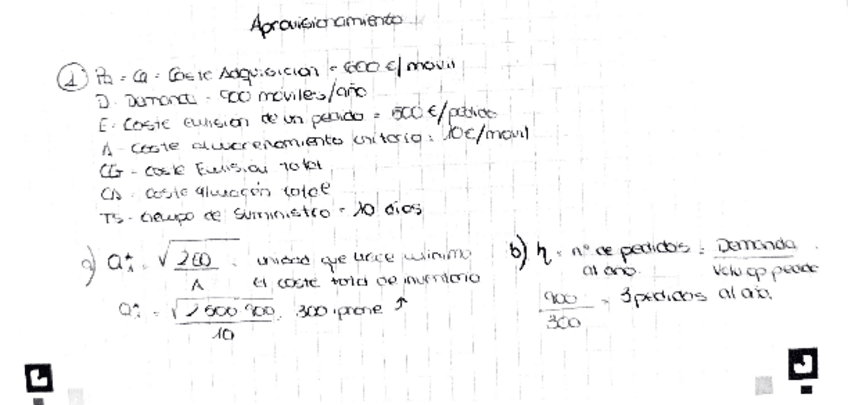 Aprovisionamiento
① Pa = Ca = Coste Adquisición = 600 €/movil
D. Demanda = 900 moviles/año
E. Coste emisión de un pedido = 500 €/pedido
A. coste almacenamiento unitario: 10€/movil
CE - coste Emisión total
CA - coste almacén total
TS. tiempo de suministro = 10 dias
a) Q* = √2ED / A. unidad que hace minimo el coste total de inventario
Q* = √2 500 900 / 10. 300 iphone ↑
b) n = nº de pedidos al año. = Demanda / pedido
900 / 300 = 3 pedidos al año.